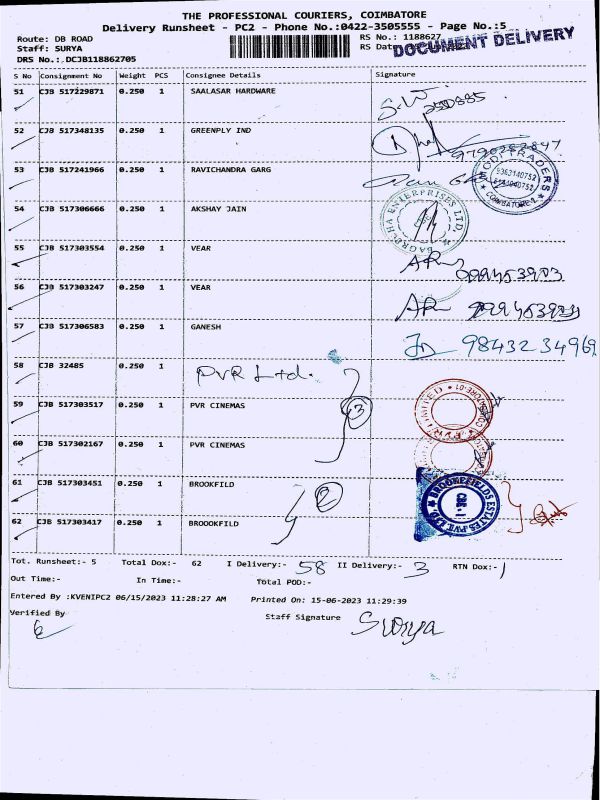 THE PROFESSIONAL COURIERS, COIMBATORE
Delivery Runsheet - PC2 - Phone No.:0422-3505555 - Page No.:5
Route: DB ROAD RS No.: 1188627
Staff: SURYA RS Dat
DRS No.: DCJB118862705 DOCUMENT DELIVERY
S No Consignment No Weight PCS Consignee Details Signature
51 CJB 517229871 0.250 1 SAALASAR HARDWARE
52 CJB 517348135 0.250 1 GREENPLY IND
53 CJB 517241966 0.250 1 RAVICHANDRA GARG
TRADERS
9363140752
COIMBATORE-2
54 CJB 517306666 0.250 1 AKSHAY JAIN
BAGRECHA ENTERPRISES LTD.
55 CJB 517303554 0.250 1 VEAR
56 CJB 517303247 0.250 1 VEAR
57 CJB 517306583 0.250 1 GANESH 98432 34969
58 CJB 32485 0.250 1 PVR Ltd.
59 CJB 517303517 0.250 1 PVR CINEMAS 3
PVR LIMITED * COIMBATORE-01
60 CJB 517302167 0.250 1 PVR CINEMAS
61 CJB 517303451 0.250 1 BROOKFILD 2
BROOKEFIELDS ESTATES PVT LTD
CBE - 1
62 CJB 517303417 0.250 1 BROOOKFILD
Tot. Runsheet:- 5 Total Dox:- 62 I Delivery:- 58 II Delivery:- 3 RTN Dox:- 1
Out Time:- In Time:- Total POD:-
Entered By :KVENIPC2 06/15/2023 11:28:27 AM Printed On: 15-06-2023 11:29:39
Verified By Staff Signature Surya